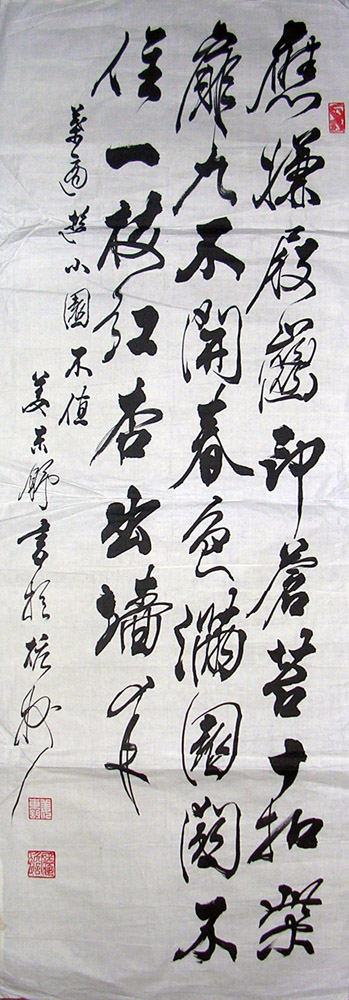 應嫌屐齒印蒼苔十扣柴
扉九不開春色滿園關不
住一枝紅杏出墻來
葉適遊小園不值
姜東舒書於杭州